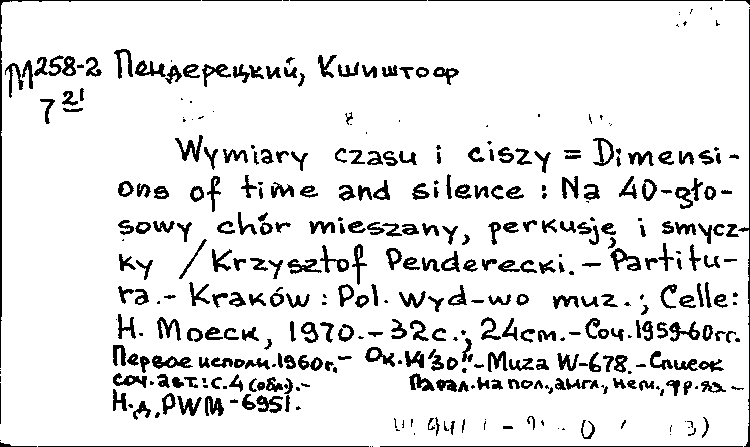 М258-2 Пендерецкий, Кшиштоф
7 21
Wymiary czasu i ciszy = Dimensi-
ons of time and silence : Na 40-gło-
sowy chór mieszany, perkusję i smycz-
ky / Krzysztof Penderecki. – Partitu-
ra. – Kraków : Pol. wyd-wo muz. ; Celle:
H. Moeck, 1970. – 32с. ; 24cm. – Соч. 1959-60гг.
Первое исполн. 1960г. – Ок. 14'30". – Muza W-678. – Список
соч. авт.: с. 4 (обл). – Парал. на пол., англ., нем., фр. яз –
Н. д. PWM – 6951.